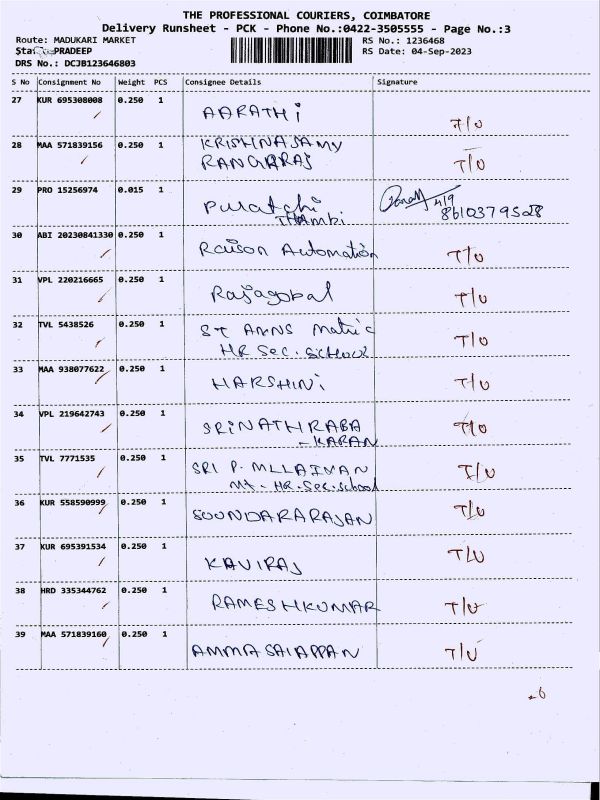 THE PROFESSIONAL COURIERS, COIMBATORE
Delivery Runsheet - PCK - Phone No.:0422-3505555 - Page No.:3
Route: MADUKARI MARKET RS No.: 1236468
PRADEEP RS Date: 04-Sep-2023
DRS No.: DCJB123646803
S No Consignment No Weight PCS Consignee Details Signature
27 KUR 695308008 0.250 1 AARATHI T/U
28 MAA 571839156 0.250 1 KRISHNASAMY
RANGARAJ T/U
29 PRO 15256974 0.015 1 Puratchi
Thambi 4/9
8610379528
30 ABI 20230841330 0.250 1 Raison Automation T/U
31 VPL 220216665 0.250 1 Rajagopal T/U
32 TVL 5438526 0.250 1 ST ANNS Matric
HR Sec. School T/U
33 MAA 938077622 0.250 1 HARSHINI T/U
34 VPL 219642743 0.250 1 SRINATHRABA
-KARAN T/U
35 TVL 7771535 0.250 1 SRI P.
Mt. HR. Sec. School T/U
36 KUR 558590999 0.250 1 SOUNDARARAJAN T/U
37 KUR 695391534 0.250 1 KAVIRAJ T/U
38 HRD 335344762 0.250 1 RAMESHKUMAR T/U
39 MAA 571839160 0.250 1 AMMASAIAPPAN T/U